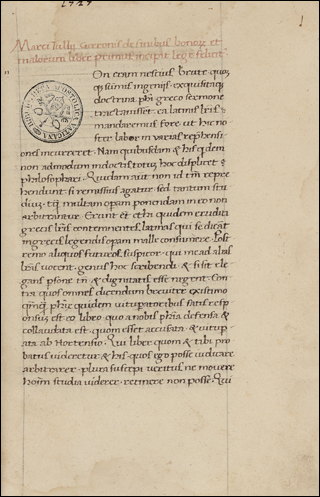 1727
1
Marci Tullij Ciceronis de finibus bonorum et
malorum liber primus incipit lege feliciter
On eram nescius brute quom
q̃ sumis ingenijs exquisitaq;
doctrina phi greco sermone
tractauissent ea latinis lr̃is
mandaremus fore ut hic no
ster labor in varias reprehensi
ones incurreret. Nam quibusdam & his q̃dem
non admodum indoctis totum hoc displicet
philosophari. Quidam aut̃ non id tm̃ repre
hendunt si remissius agatur sed tantum stu
dium tq; multam opam ponendam in eo non
arbitrantur. Erunt et etiã quidem eruditi
grecis lr̃is contemnentes latinas qui se dicãt
in grecis legendis opam malle consumere. Post
remo aliquos futuros suspicor qui me ad alias
lr̃as uocent genus hoc scribendi & si sit ele
gans psone tñ & dignitatis esse negent. Con
tra quos omnes dicendum breuiter existimo
quidem uituperatoribus satis resp
onsum est eo libro quo a nobis phia defensa &
collaudata est quom esset accusata & uitup
ata ab Hortensio. Qui liber quom & tibi pro
batus uideretur & his quos ego posse iudicare
arbitrarer plura suscepi ueritus ne mouere
hoim̃ studia viderer retinere non posse. Qui